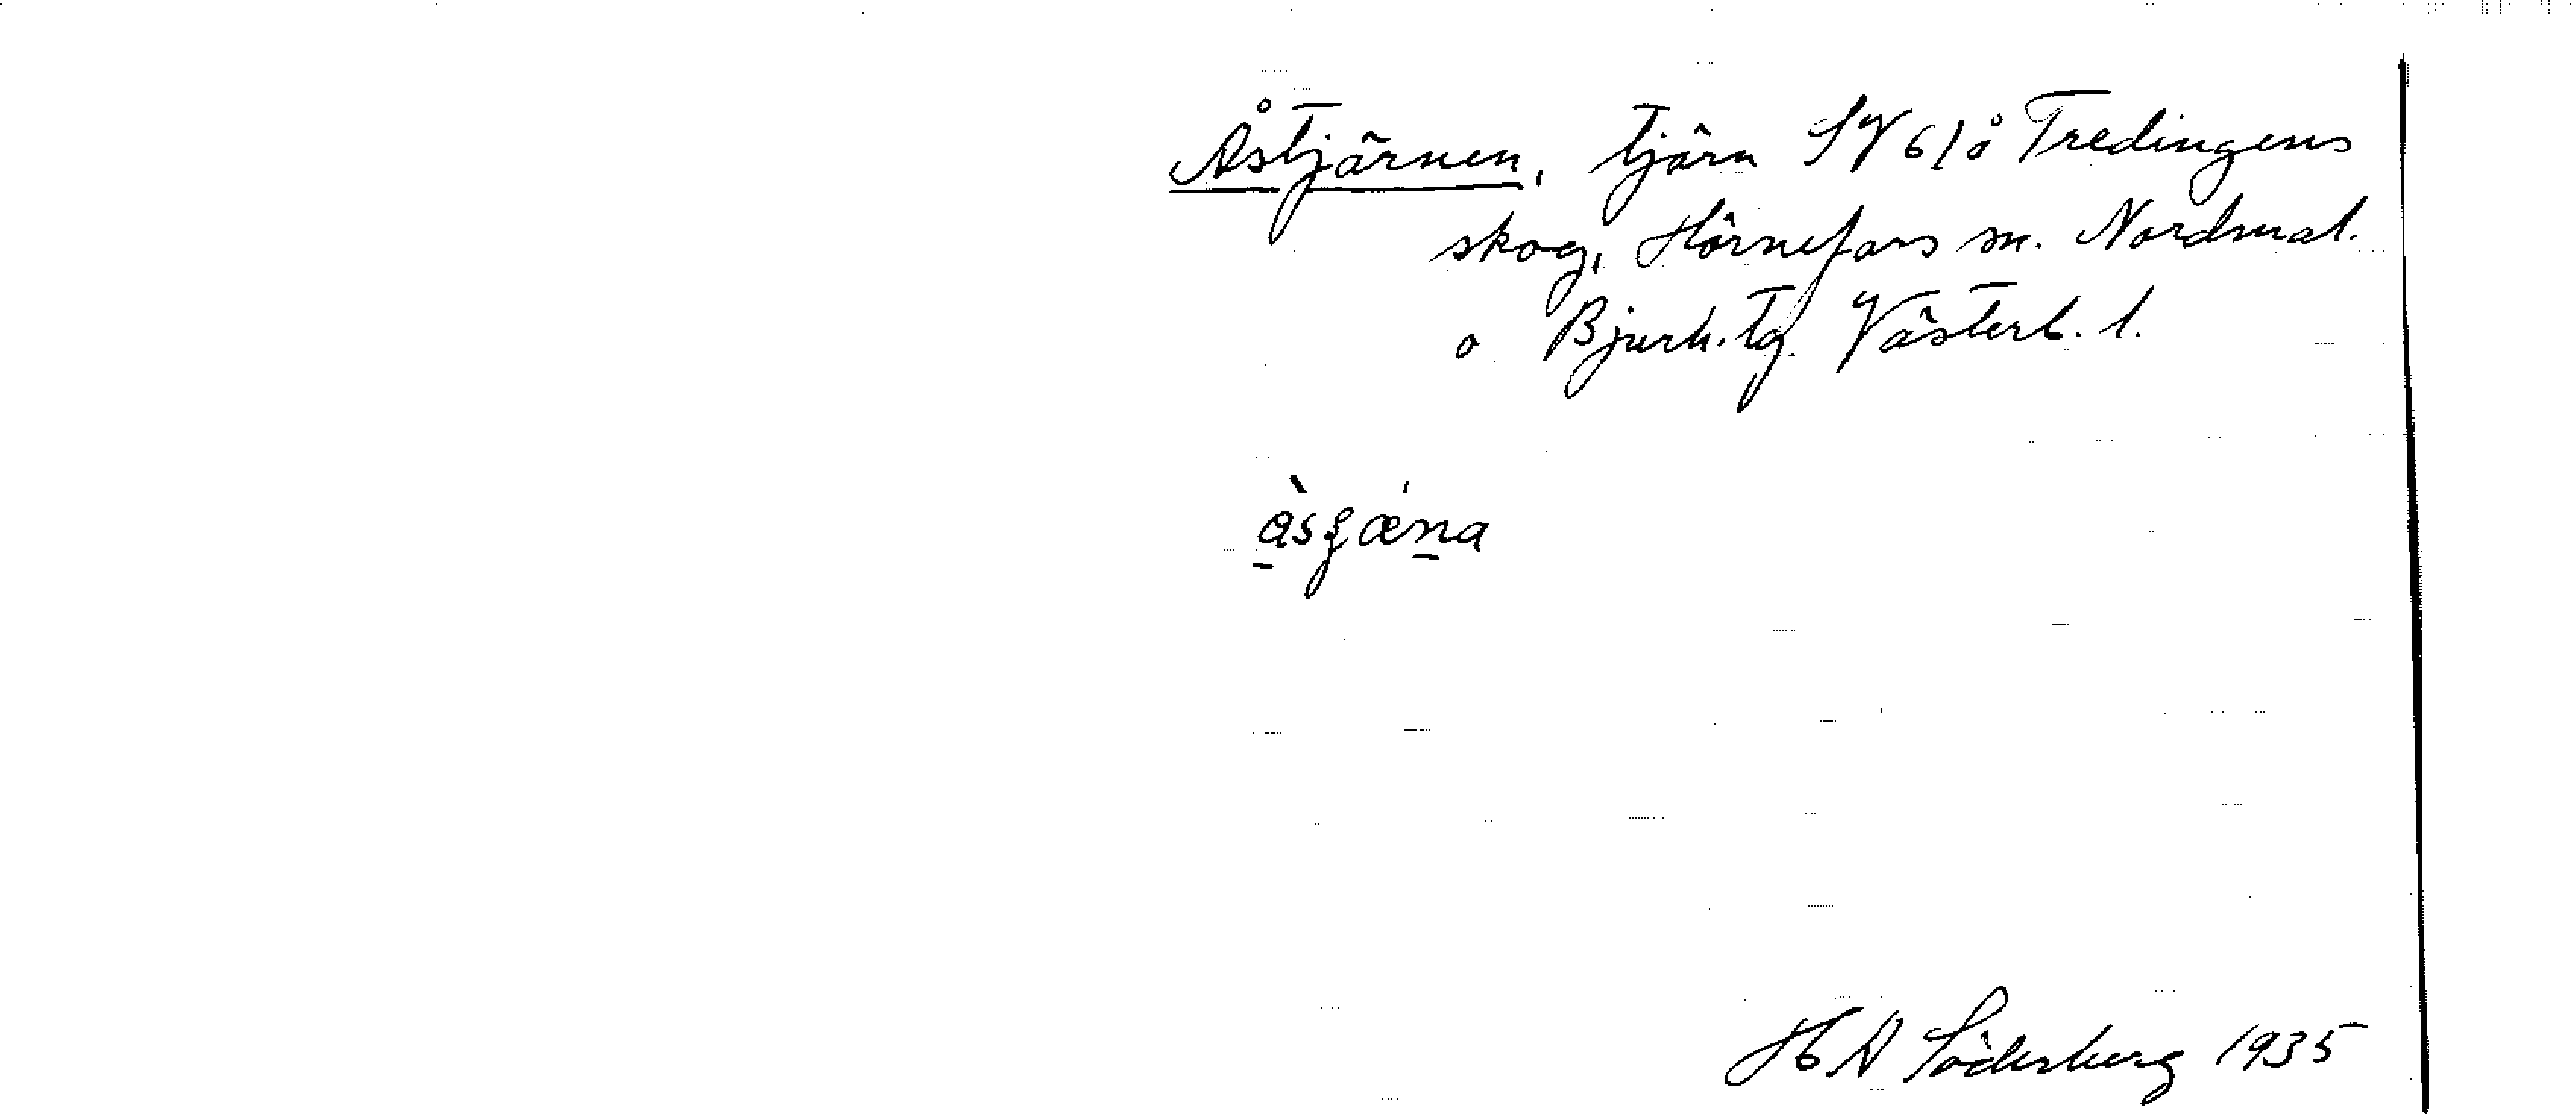 Åstjärnen, tjärn SV 61 å Tredingens
skog, Hörnefors sn. Nordmal.
o Bjurh. tg. Västerb. l.
H A Söderberg 1935